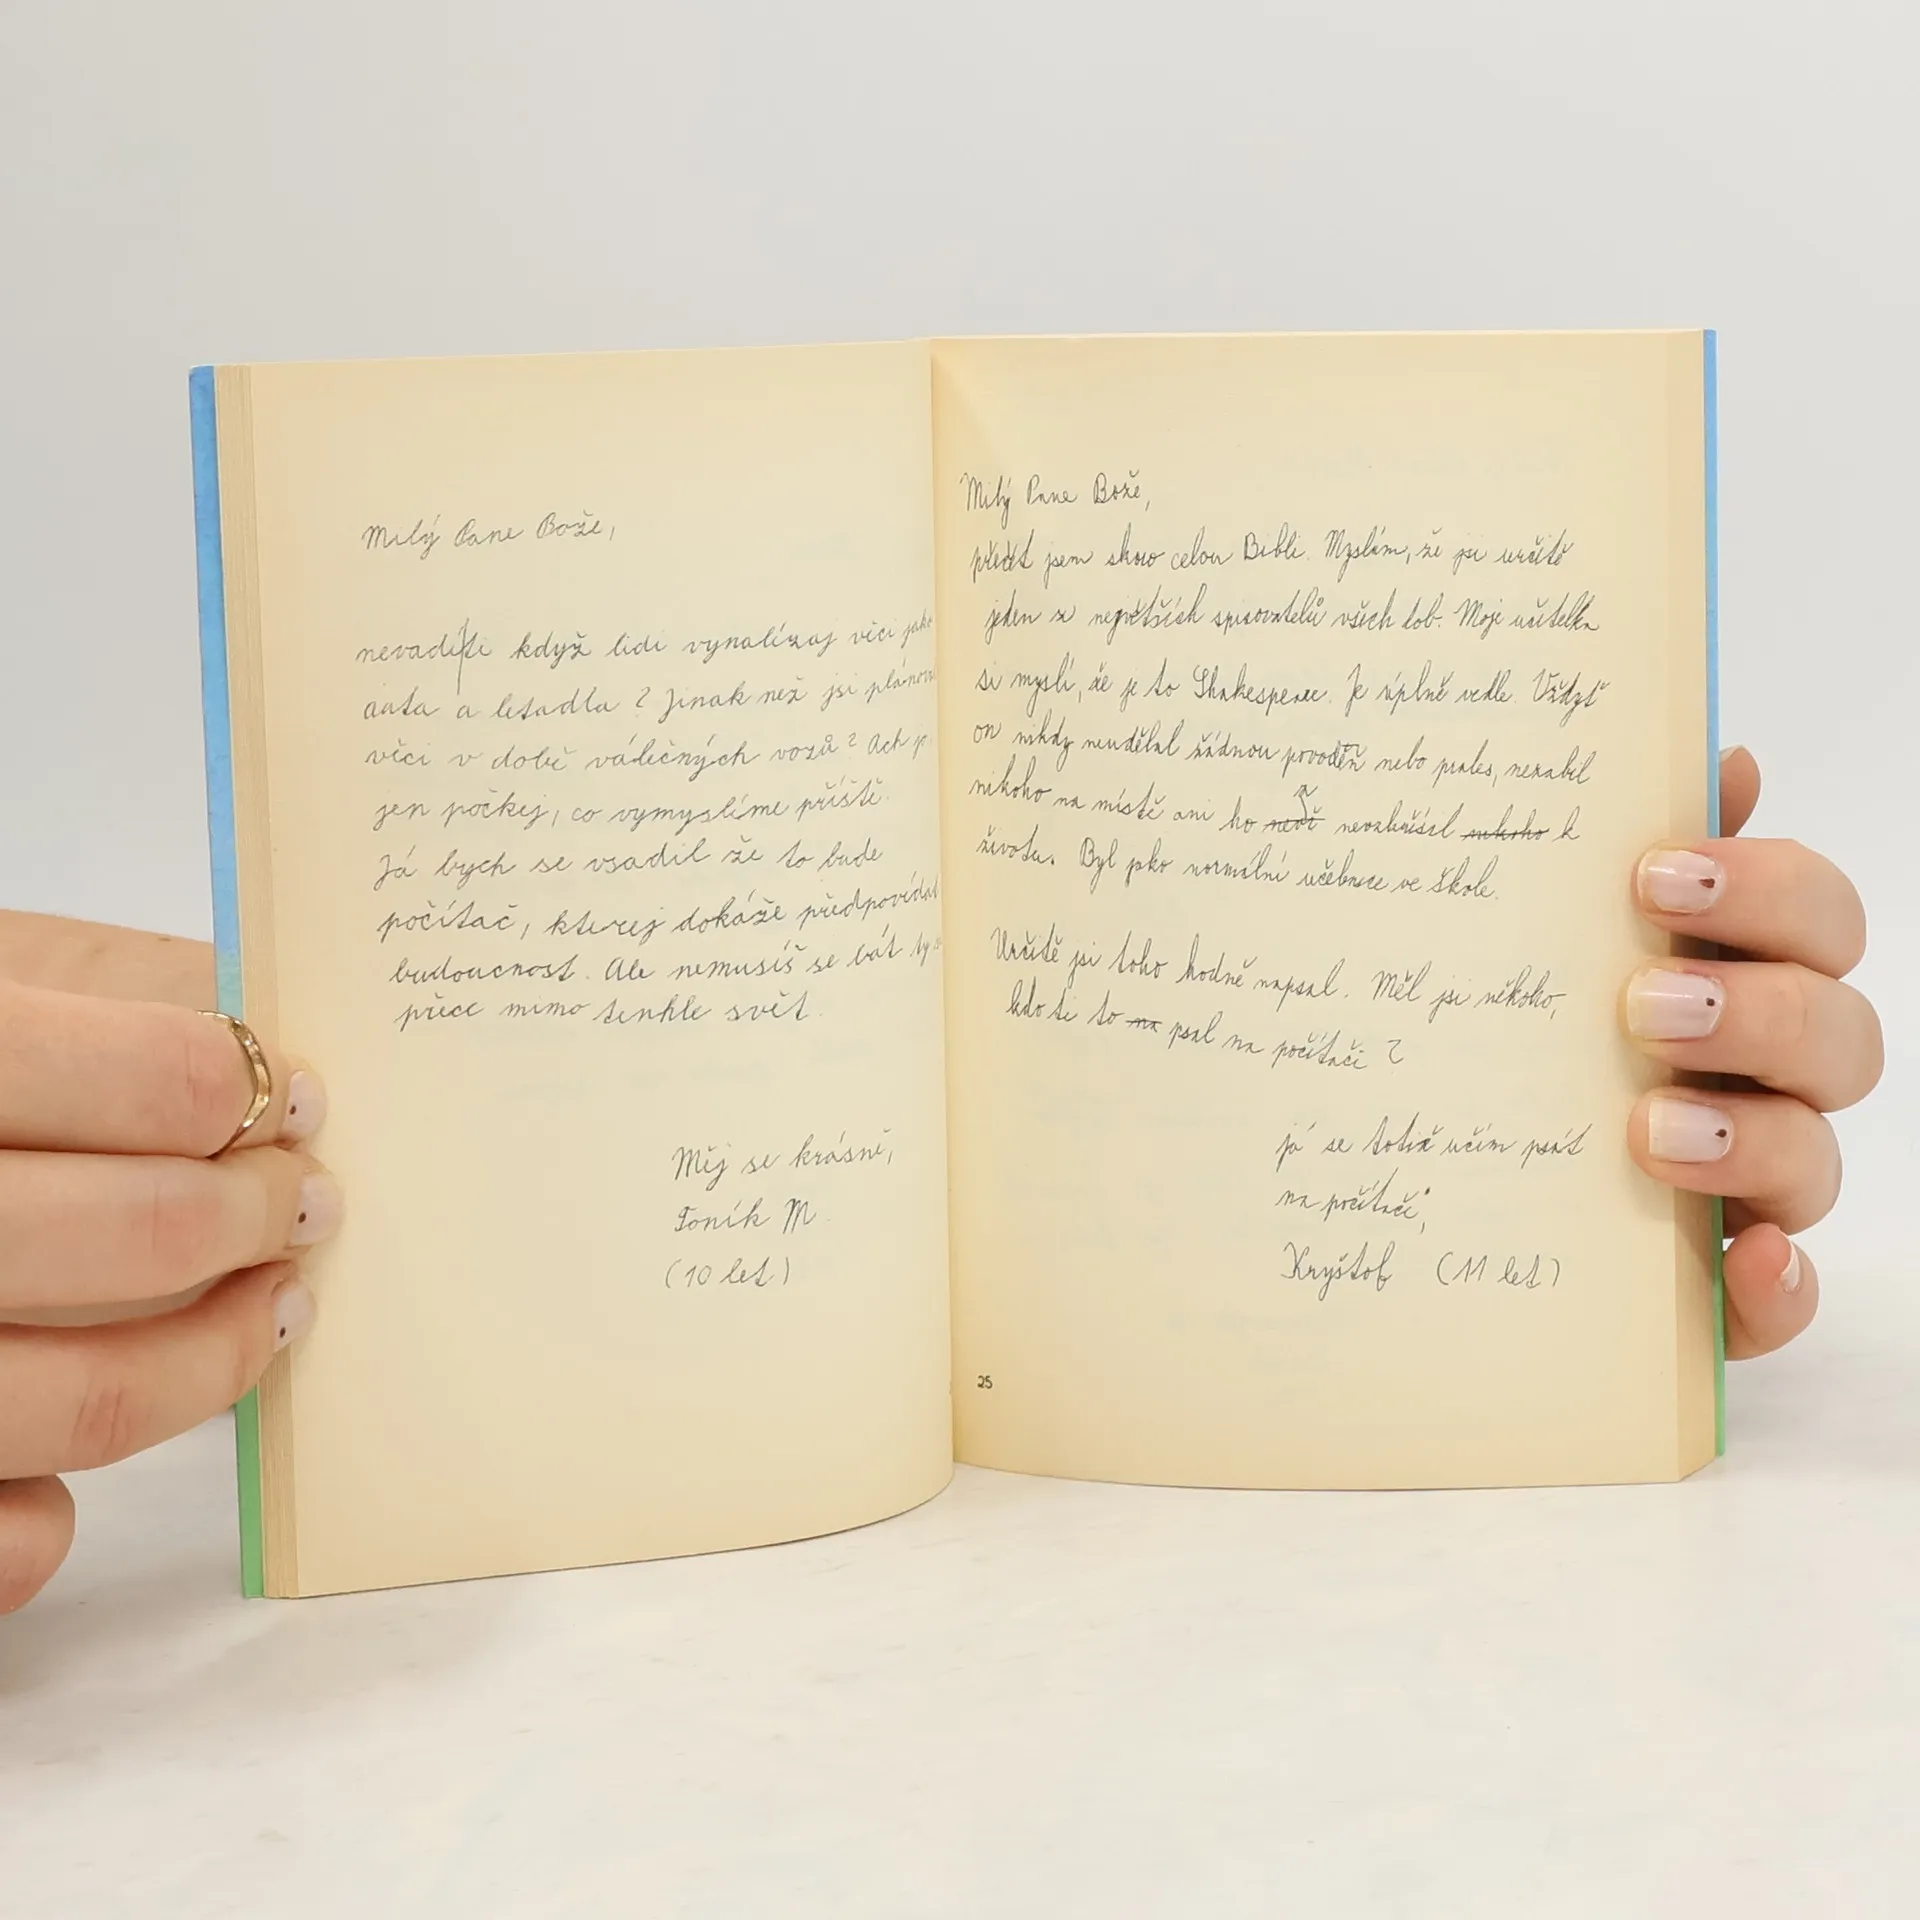 Milý Pane Bože,
nevadí ti když lidi vynalízaj věci jako
auta a letadla? Jinak než jsi plánoval
věci v době válečných vozů? Ach jo
jen počkej, co vymyslíme příště.
Já bych se vsadil že to bude
počítač, kterej dokáže předpovídat
budoucnost. Ale nemusíš se bát ty
přece mimo tenhle svět.
Měj se krásně,
Toník M.
(10 let)
Milý Pane Bože,
přečet jsem skoro celou Bibli. Myslím, že jsi určitě
jeden z největších spisovatelů všech dob. Moje učitelka
si myslí, že je to Shakespeare. Je úplně vedle. Vždyť
on nikdy neudělal žádnou povodeň nebo prales, nezabil
nikoho na místě ani ho nevzkřísil nikoho k
životu. Byl jako normální učebnice ve škole.
Určitě jsi toho hodně napsal. Měl jsi někoho,
kdo ti to na psal na počítači?
já se totiž učím psát
na počítači,
Kryštof (11 let)
25